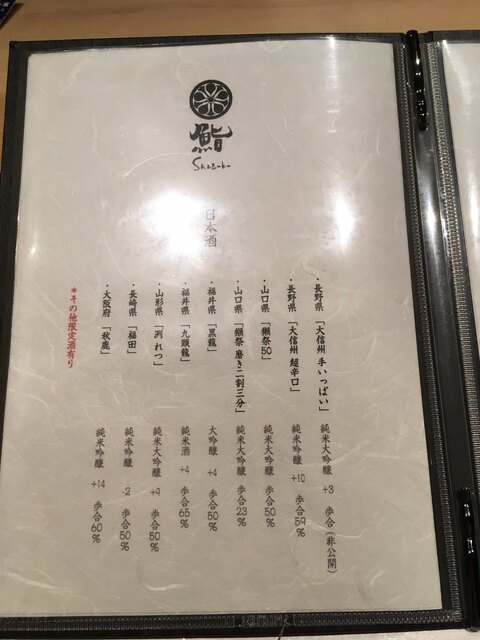 鮨
Shizuku
日本酒
・長野県「大信州 手いっぱい」 純米大吟醸 +3 歩合(非公開)
・長野県「大信州 超辛口」 純米吟醸 +10 歩合59%
・山口県「獺祭50」 純米大吟醸 歩合50%
・山口県「獺祭 磨き二割三分」 純米大吟醸 歩合23%
・福井県「黒龍」 大吟醸 +4 歩合50%
・福井県「九頭龍」 純米酒 +4 歩合65%
・山形県「洌 れつ」 純米大吟醸 +9 歩合50%
・長崎県「福田」 純米吟醸 -2 歩合50%
・大阪府「秋鹿」 純米吟醸 +14 歩合60%
*その他限定酒有り